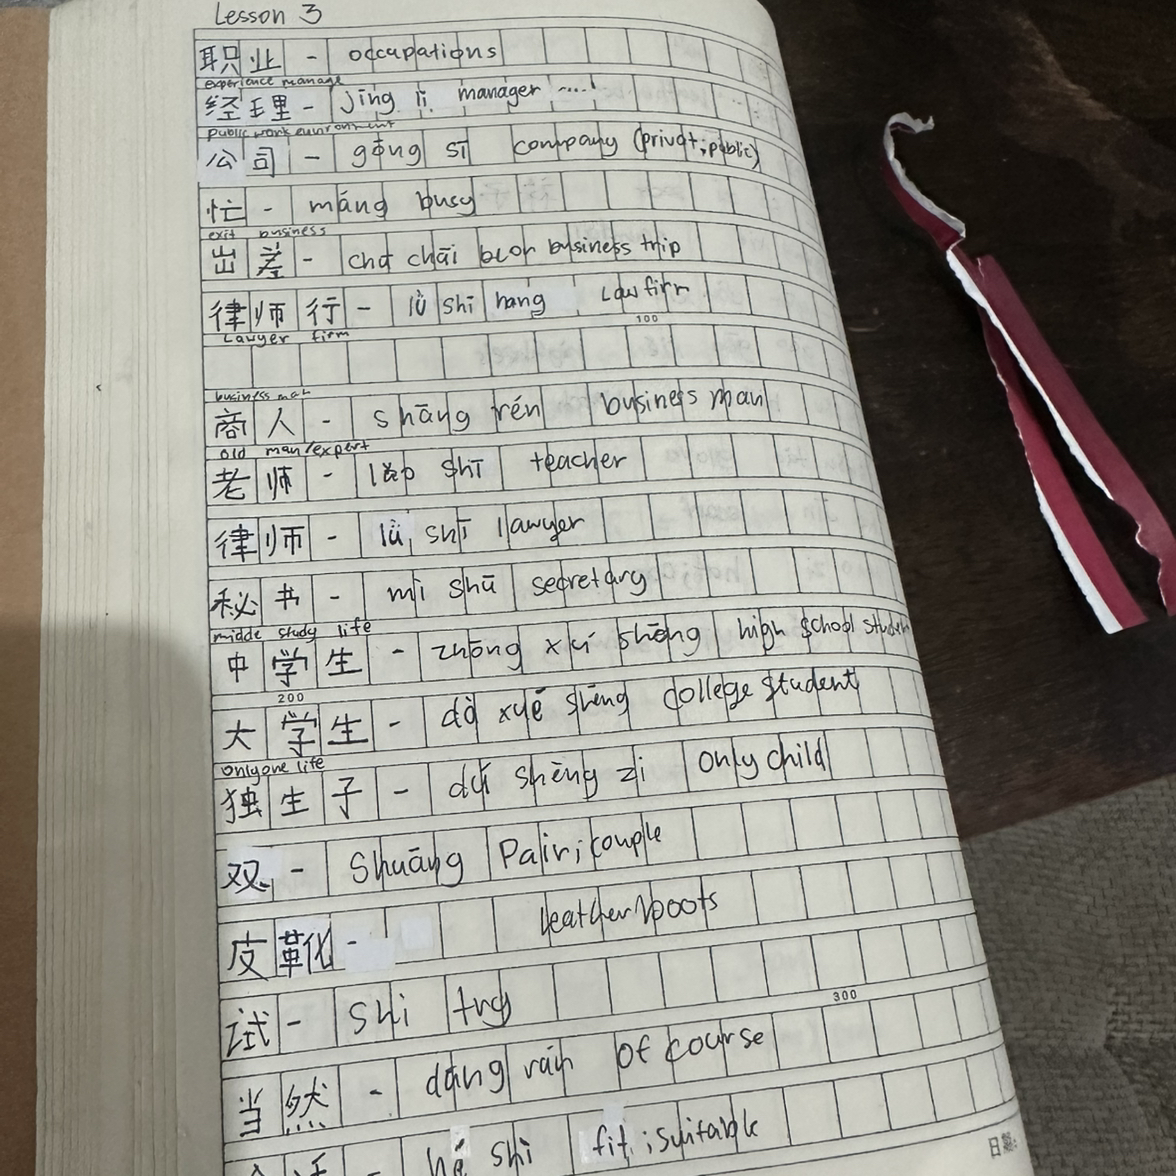 Lesson 3
职业 - occupations
experience manage
经理 - jīng lǐ manager ....
public work environment
公司 - gōng sī company (privat; public)
忙 - máng busy
exit business
出差 - chū chāi be on business trip
律师行 - lǜ shī hang Law firm
100
Lawyer firm
business man
商人 - shāng rén business man
old man/expert
老师 - lǎo shī teacher
律师 - lǜ shī lawyer
秘书 - mì shū secretary
midde study life
中学生 - zhōng xué shēng high school student
200
大学生 - dà xué shēng college student
only one life
独生子 - dú shēng zi only child
双 - Shuāng Pair; couple
皮靴 - leather boots
试 - shi try
300
当然 - dāng rán of course
hé shì fit; suitable
日期: